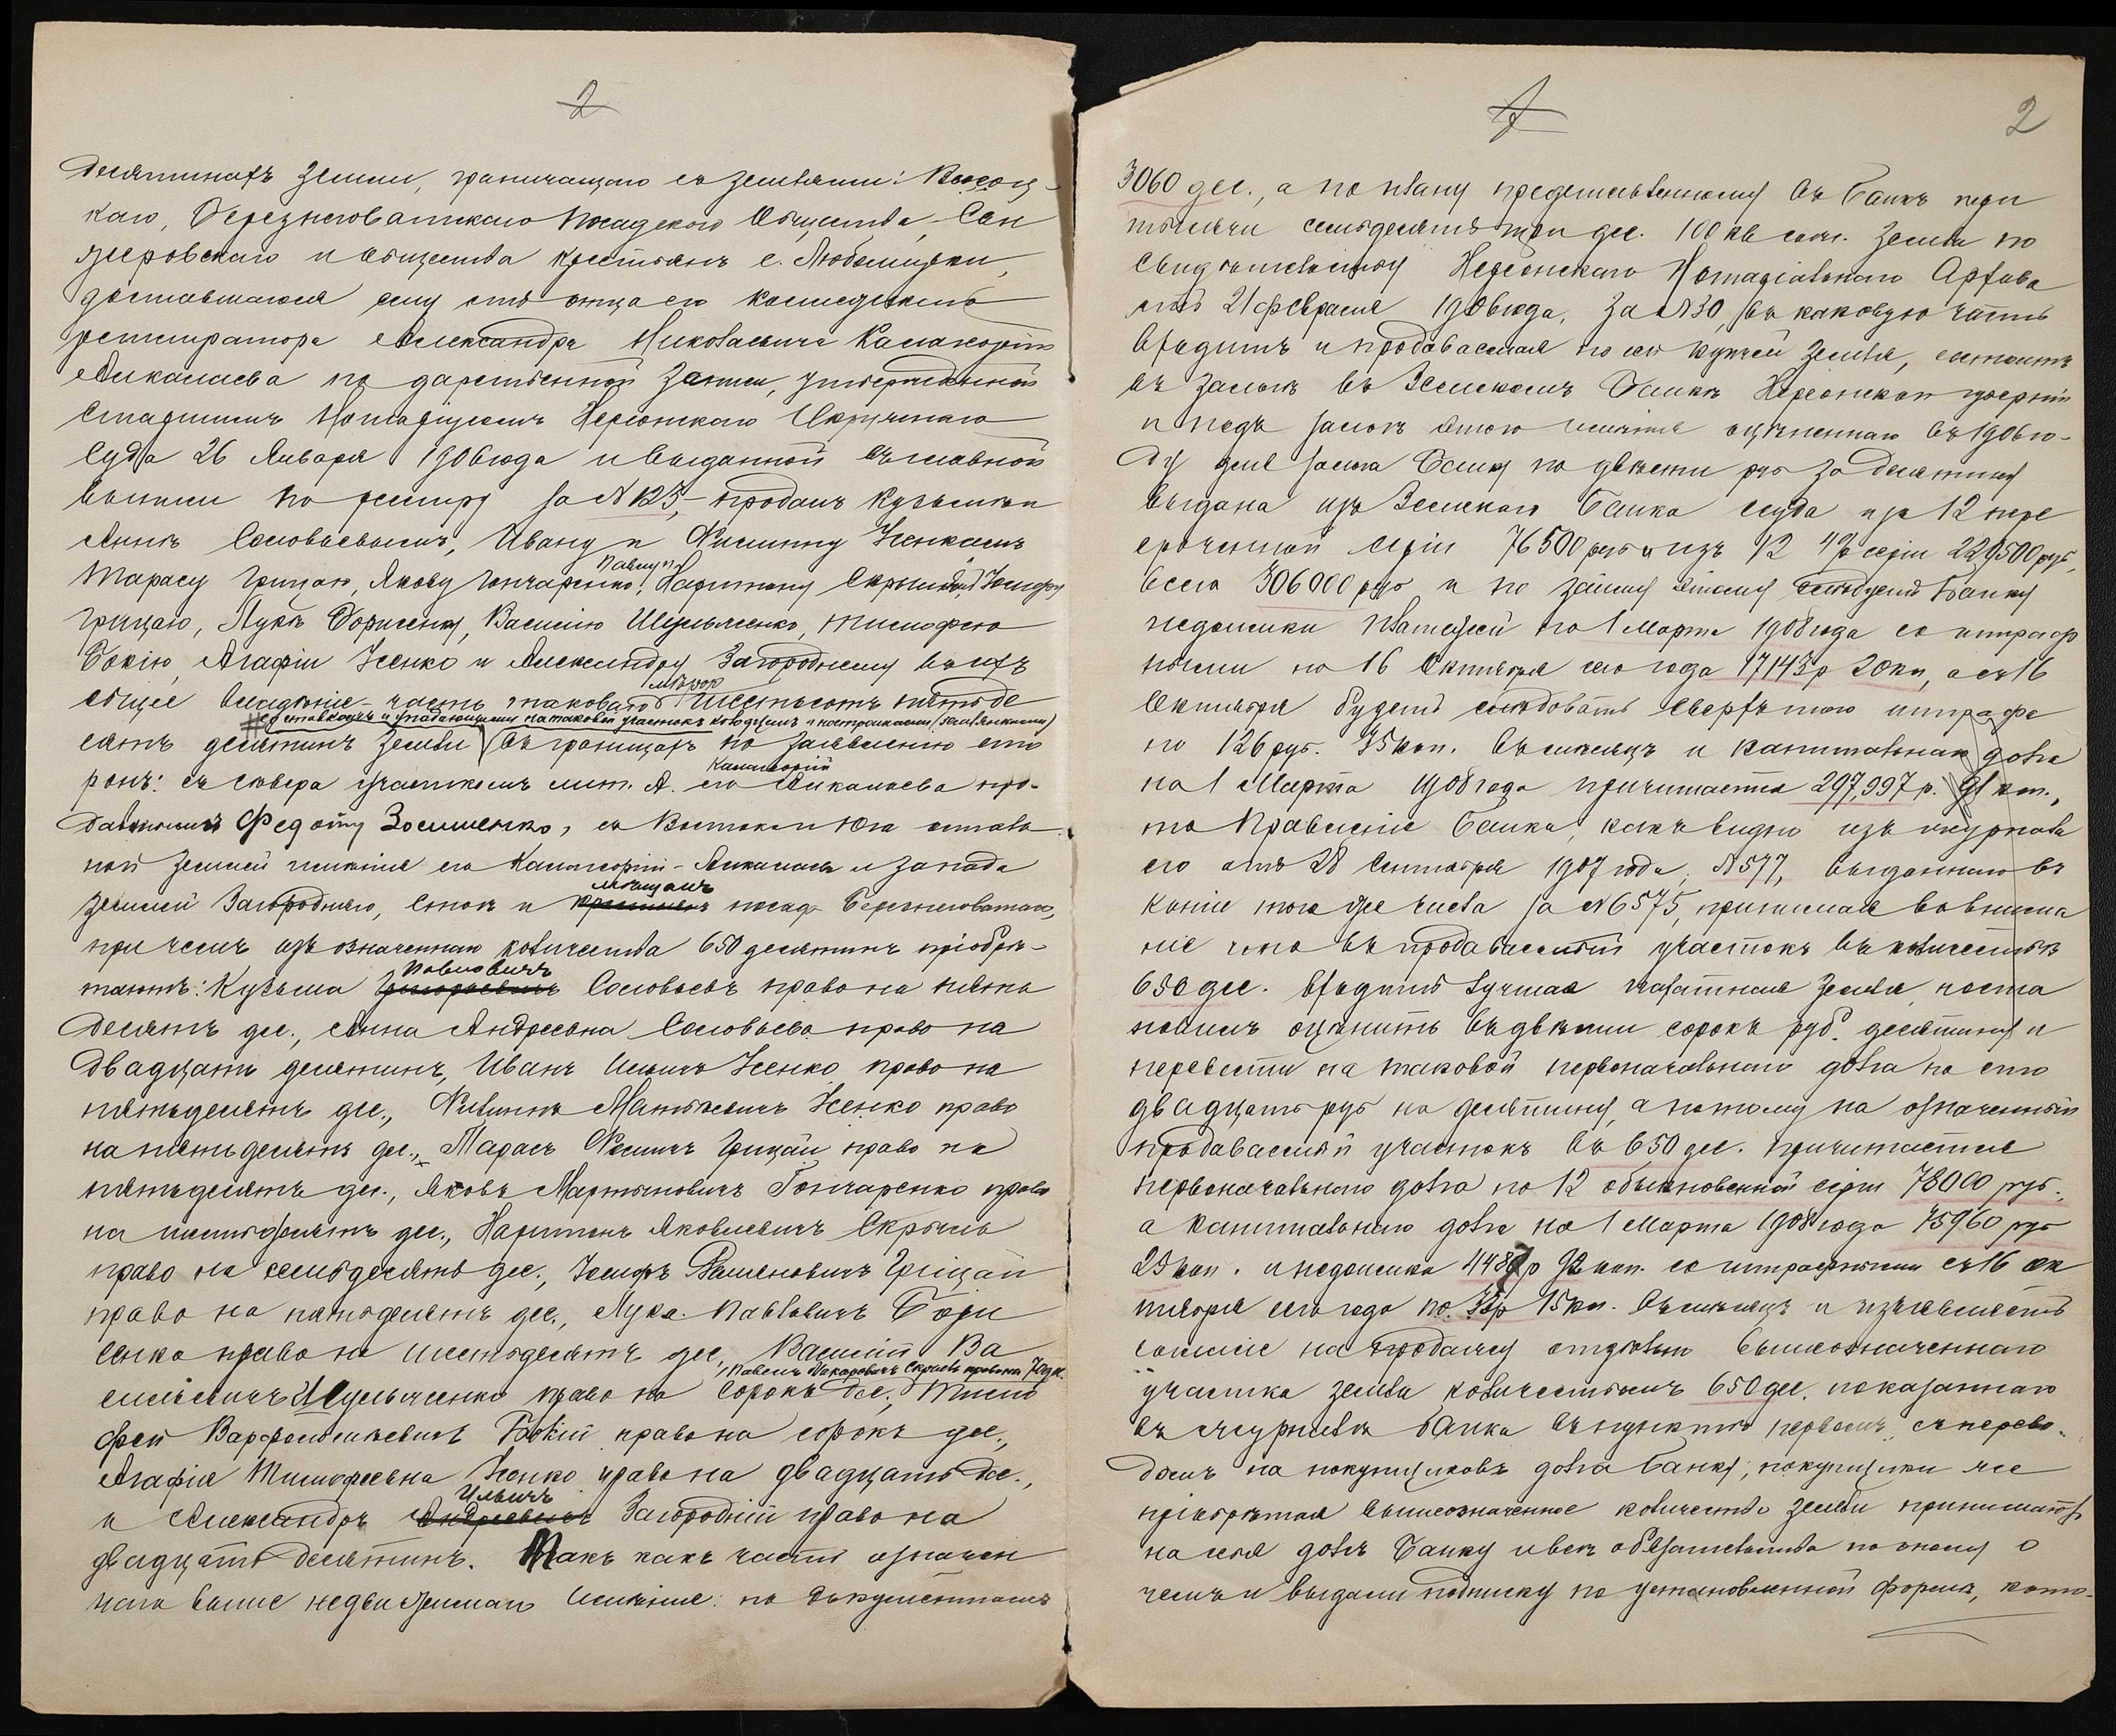 2
десятинахъ земли, граничащаго съ землями: Высоц-
каго, Березнеговатскаго Посадскаго Общества, Сен
жеровскаго и общества крестьянъ с. Любомирки,
доставшагося ему отъ отца его коллежскаго
регистратора Александра Николаевича
Аикалаева по дарственной записи, утвержденной
Старшимъ Нотаріусомъ Херсонскаго Окружнаго
Суда 26 Января 1906 года и выданной съ главной
выписи по реестру за № 123, – продалъ Кузьмѣ и
Аннѣ Соловьевымъ, Ивану и Филиппу Усенкамъ
Павлу и
Тарасу Грицаю, Якову Гончаренко, Харитону Іосифу
Грицаю, Лукѣ Борисенку, Василію Шульженко, Тимофею
Бокію, Агафіи Усенко и Александру Загороднему въ ихъ
мѣрою
общее владѣніе – часть таковаго шестьсотъ пятьде
сятъ десятинъ земли въ границахъ по заявленію сто
ронъ: съ сѣвера участкомъ лит. А. его Аикалаева про-
даваемымъ Федоту Зосименко, съ Востока и Юга
ной землей имѣнія его Аикалаева и запада
мѣщанъ
землей Загородняго, и посад. Березнеговатаго,
при чемъ изъ означеннаго количества 650 десятинъ пріобрѣ-
Павловичъ
таютъ: Кузьма Григорьевичъ Соловьевъ право на пять
десятъ дес., Анна Андреевна Соловьева право на
двадцать десятинъ, Иванъ Ильичъ Усенко право на
пятьдесятъ дес., Филиппъ Матвѣевичъ Усенко право
на пятьдесятъ дес., Тарасъ Грицай право на
пятьдесятъ дес., Яковъ Мартыновичъ Гончаренко право
на шестьдесятъ дес., Харитонъ Яковлевичъ
право на семьдесятъ дес., Іосифъ Грицай
право на пятьдесятъ дес., Лука Павловичъ Бори
сенко право на шестьдесятъ дес., Василій Ва
Павелъ Макаровичъ право на 70 дес.
сильевичъ Шульженко право на сорокъ дес., Тимо
фей Варфоломѣевичъ Бокій право на сорокъ дес.,
Агафія Тимофеевна Усенко право на двадцать дес.,
Ильичъ
и Александръ Андреевичъ Загородній право на
двадцать десятинъ. Такъ какъ часть означен
наго выше недвижимаго имѣнія: по документамъ
2
3060 дес., а по плану представленному въ Банкъ три
тысячи семьдесятъ три дес. 100 кв. саж. земли по
свидѣтельству Херсонскаго Нотаріальнаго Архива
отъ 21 февраля 1906 года, за № 30, въ каковую часть
входитъ и продаваемая по сей купчей земля, состоитъ
въ залогѣ въ Земскомъ Банкѣ Херсонской губерніи
и подъ залогъ этого имѣнія оцѣненнаго въ 1906 го-
ду для залога Банку по двѣсти руб. за десятину
выдана изъ Земскаго Банка ссуда изъ 12 пере
сроченной серіи 76500 руб. и изъ 12 4% серіи 229500 руб.,
всего 306000 руб. и по займу этому слѣдуетъ Банку
недоимки платежей по 1 Марта 1908 года со штраф
ными по 16 Октября сего года 17143 р 20 кп, а съ 16
Октября будетъ слѣдовать сверхъ того штрафа
по 126 руб. 75 коп. въ мѣсяцъ и капитальнаго долга
на 1 Марта 1908 года причитается 297,997 р. 91 коп.,
то Правленіе Банка, какъ видно изъ журнала
его отъ 28 Сентября 1907 года, № 577, выданнаго въ
копіи того же числа за № 6575, принимая во внима
ніе что въ продаваемый участокъ въ количествѣ
650 дес. входитъ лучшая пахатная земля, поста
новилъ оцѣнить въ двѣсти сорокъ руб. десятину и
перевести на таковой первоначальнаго долга по сто
двадцать руб. на десятину, а потому на означенный
продаваемый участокъ въ 650 дес. причитается
первоначальнаго долга по 12 обыкновенной серіи 78000 руб.,
а капитальнаго долга на 1 Марта 1908 года 75960 руб.
25 коп. и недоимка со штрафными съ 16 ок
тября сего года по 15 кп. въ мѣсяцъ и изъявляетъ
согласіе на продажу отдѣльно вышеозначеннаго
участка земли количествомъ 650 дес. показаннаго
въ журналѣ Банка въ пунктѣ первомъ, съ перево-
домъ на покупщиковъ долга Банку, покупщики же
пріобрѣтая вышеозначенное количество земли принимаютъ
на себя долгъ Банку и всѣ обязательства по оному о
чемъ и выдали подписку по установленной формѣ, кото-